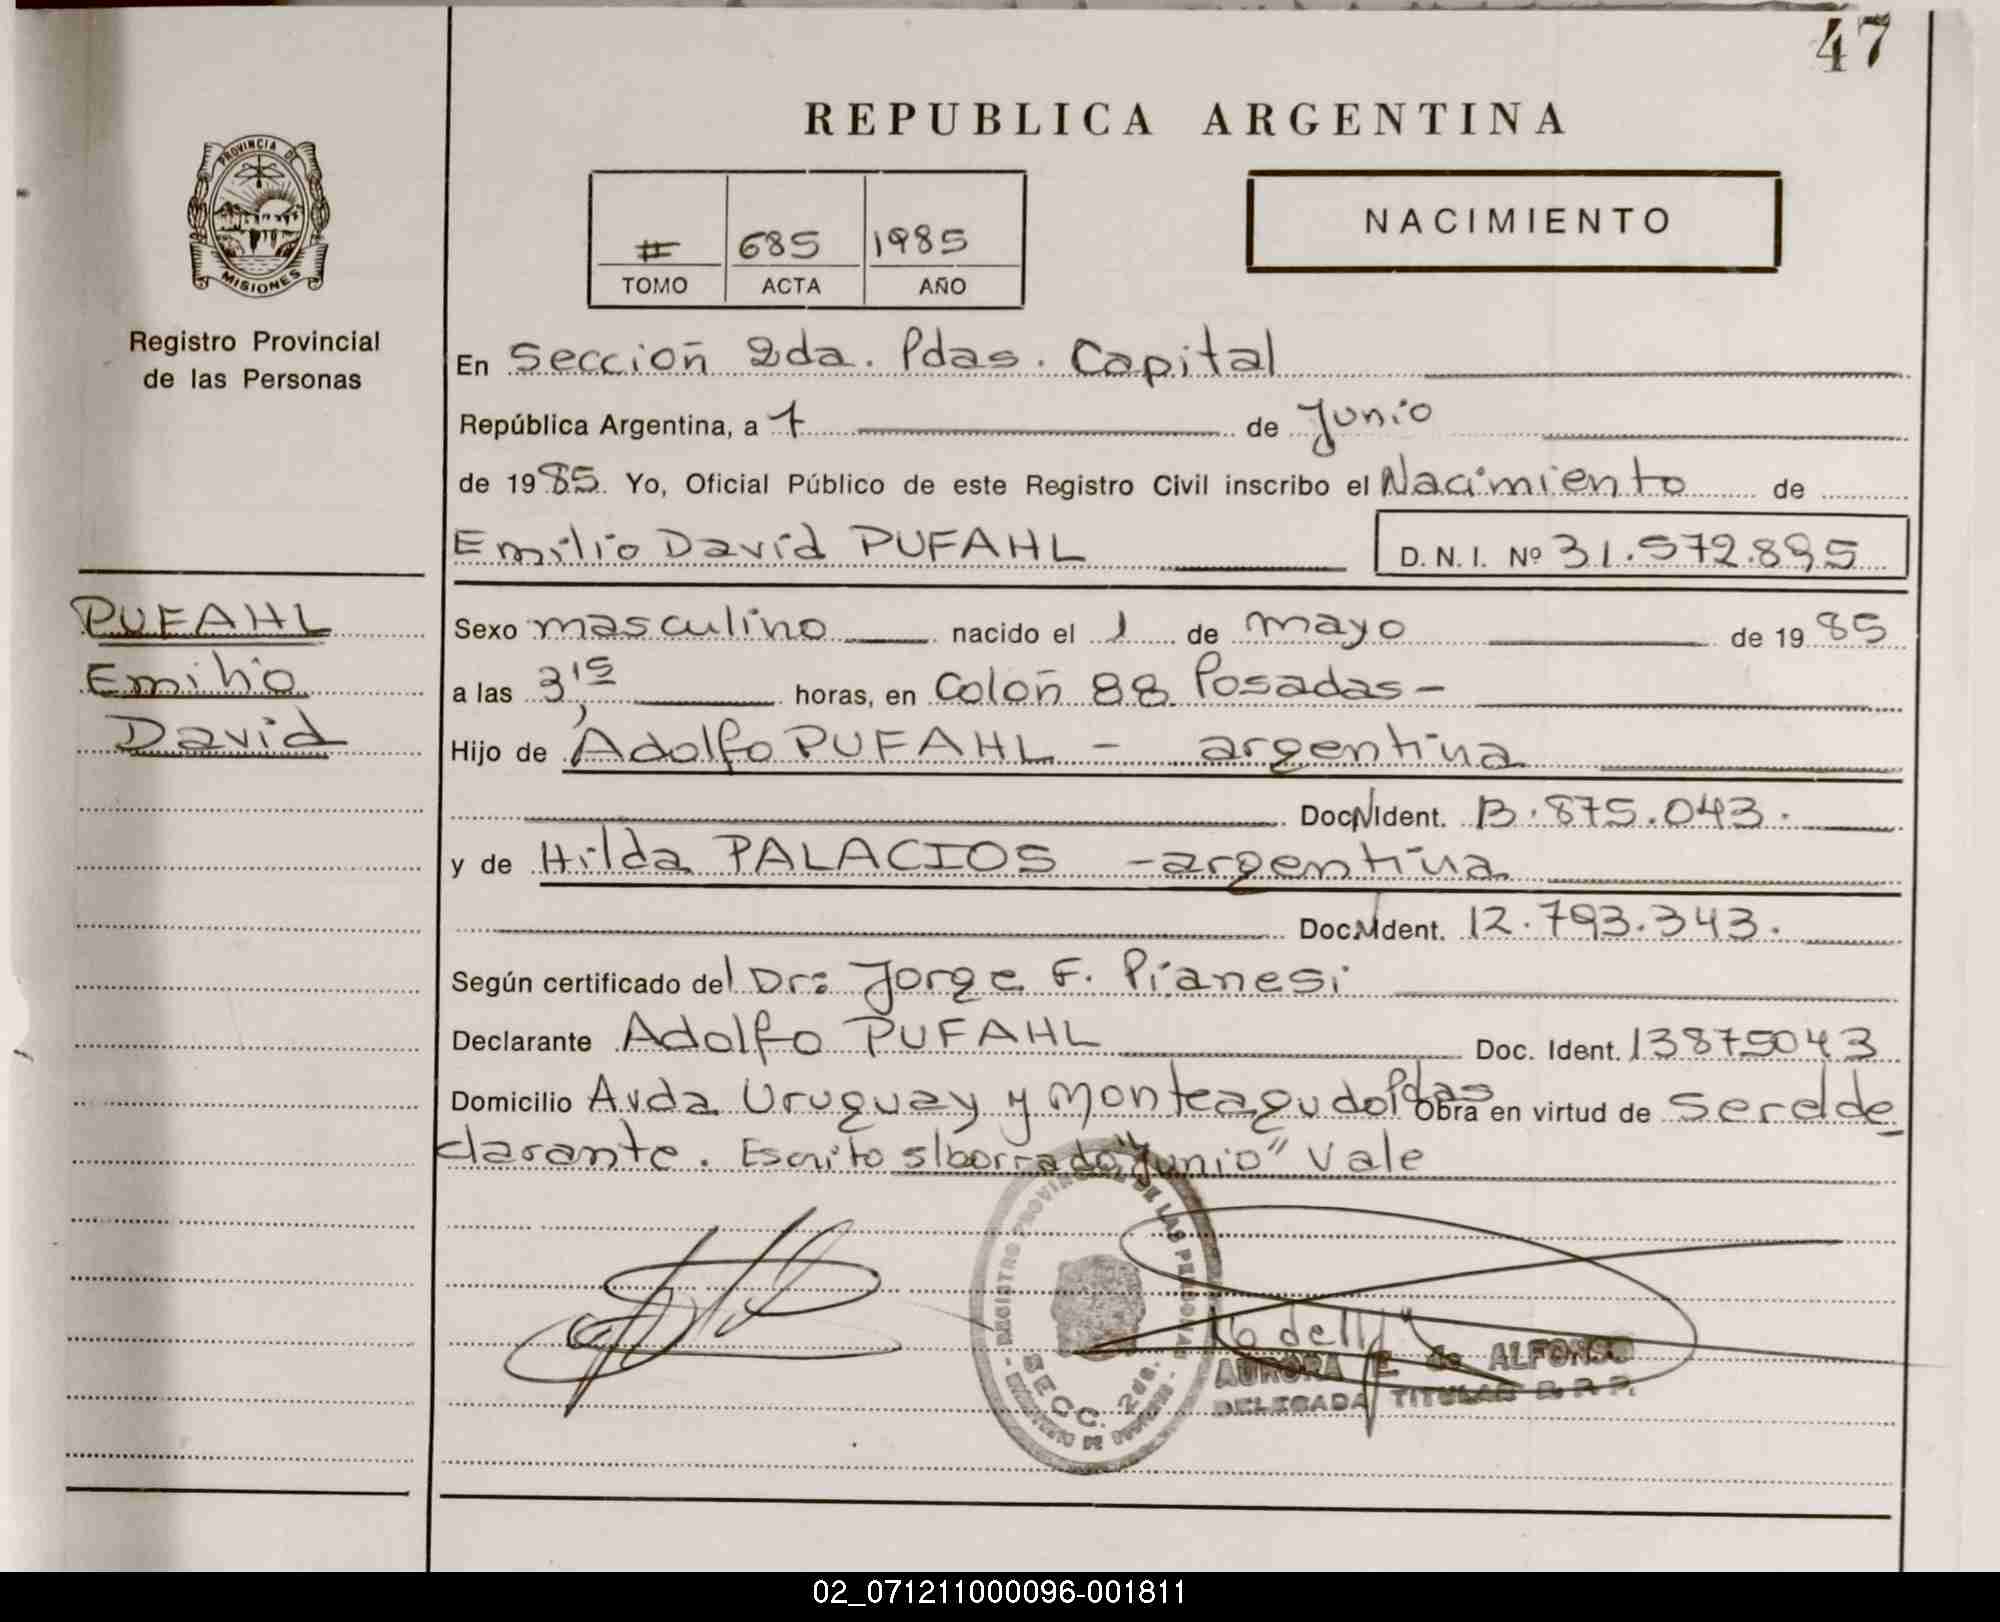 47
REPUBLICA ARGENTINA
PROVINCIA DE
MISIONES
Registro Provincial
de las Personas
II 685 1985
TOMO ACTA AÑO
NACIMIENTO
En Sección 2da. Pdas. Capital
República Argentina, a 7 de Junio
de 1985. Yo, Oficial Público de este Registro Civil inscribo el Nacimiento de
Emilio David PUFAHL D. N. I. Nº 31.572.895
PUFAHL
Emilio
David
Sexo masculino nacido el 1 de mayo de 1985
a las 3,15 horas, en Colón 88 Posadas-
Hijo de Adolfo PUFAHL - argentina
Doc N Ident. 13.875.043.
y de Hilda PALACIOS - argentina
Doc N Ident. 12.793.343.
Según certificado del Dr: Jorge F. Pianesi
Declarante Adolfo PUFAHL Doc. Ident. 13875043
Domicilio Avda Uruguay y Monteagudo Pdas Obra en virtud de ser el de
clarante. Escrito s/borrado "Junio" Vale
REGISTRO PROVINCIAL DE LAS PERSONAS
SECC. 2da.
MINISTERIO DE GOBIERNO
AURORA E. de ALFONSO
DELEGADA TITULAR R. P. P.
02_071211000096-001811